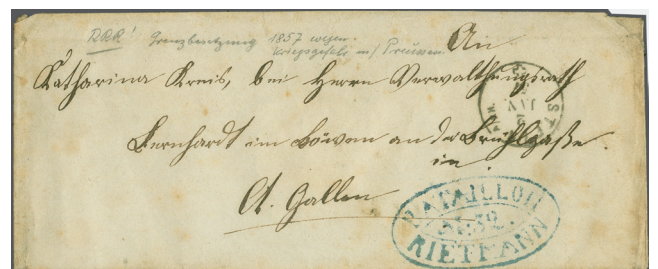 RRR! Grenzbesetzung 1857 wegen
Kriegsgefahr m/ Preussen.
An
Katharina Kreis, bei Herrn Verwaltungsrath
Bernhardt im Löwen an der Brühlgaße.
in
St. Gallen
BATAILLON
No. 32.
RIETMANN